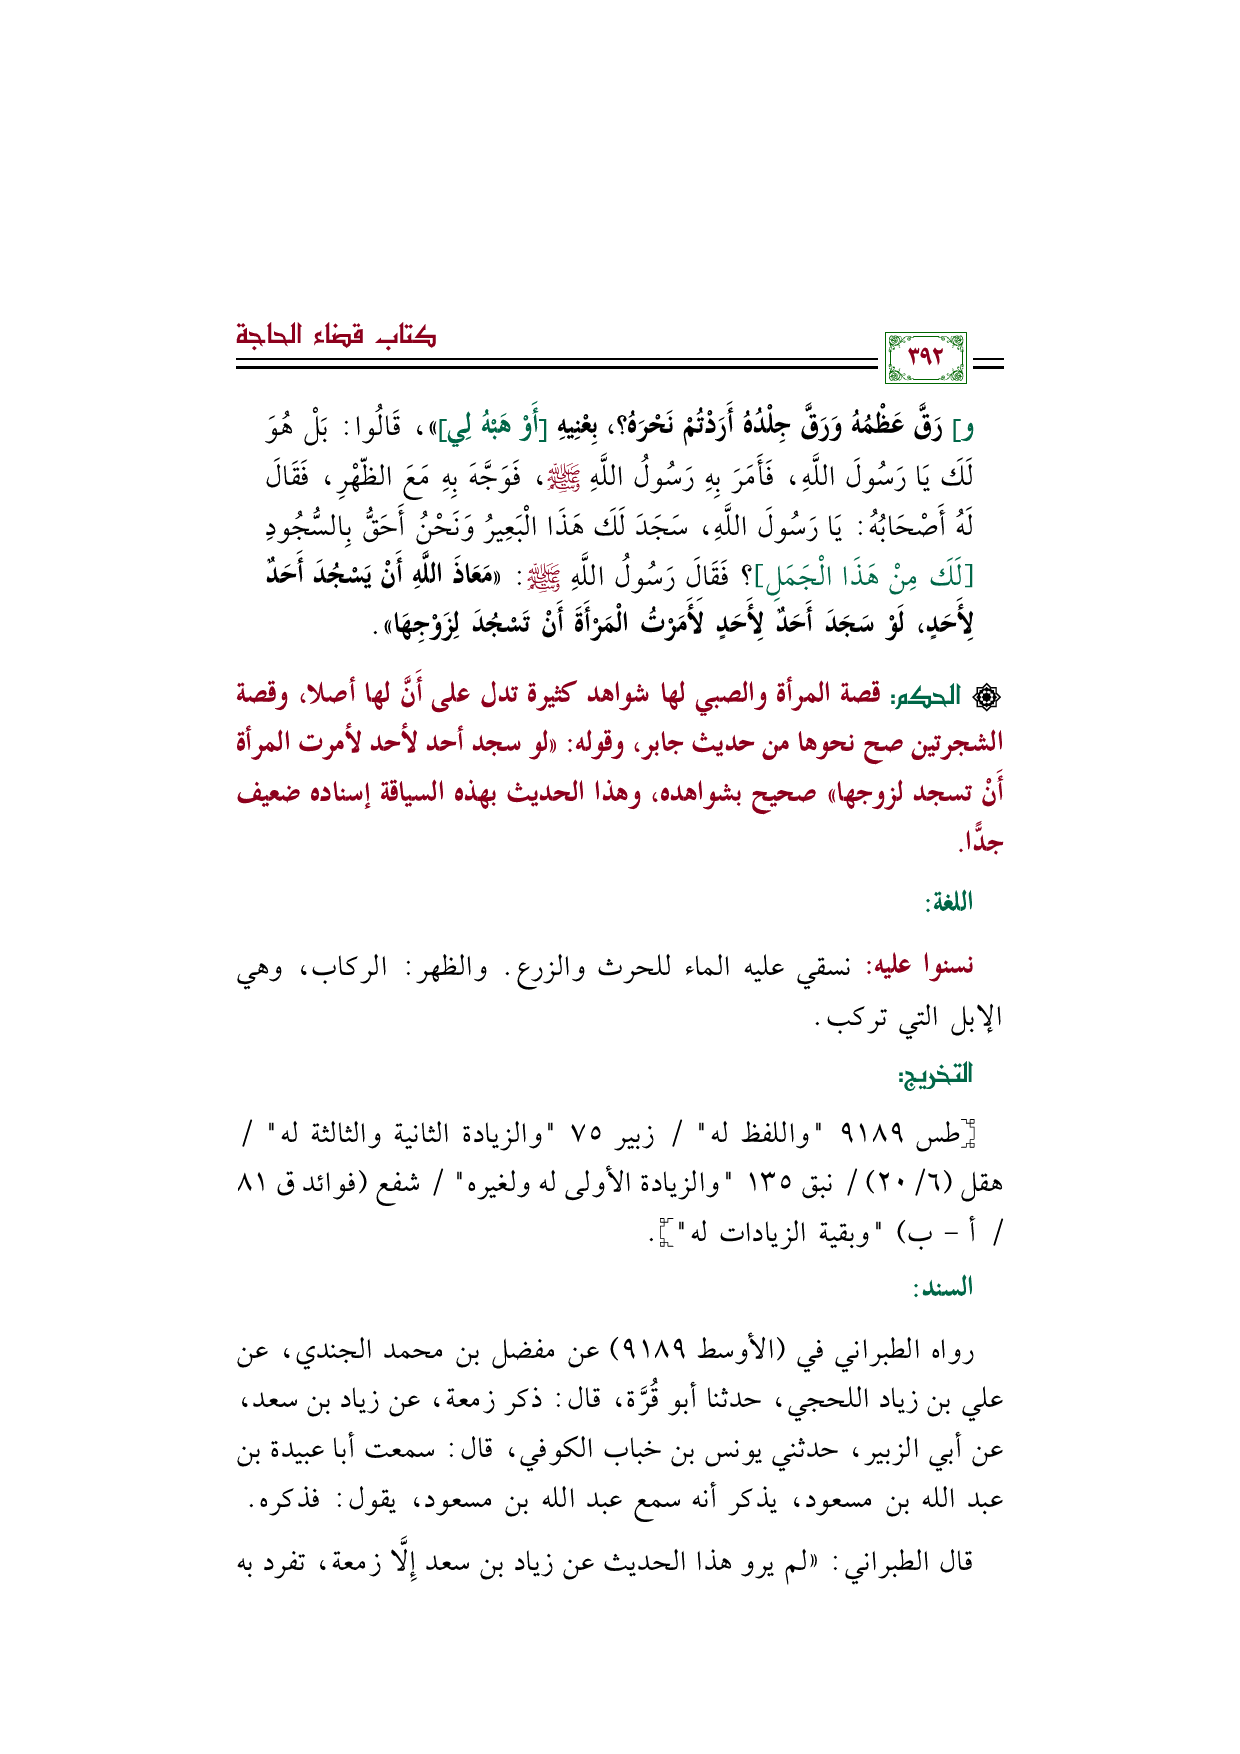 كتاب قضاء الحاجة
٣٩٢
و] رَقَّ عَظْمُهُ وَرَقَّ جِلْدُهُ أَرَدْتُمْ نَحْرَهُ؟، بِعْنِيهِ [أَوْ هَبْهُ لِي]»، قَالُوا: بَلْ هُوَ
لَكَ يَا رَسُولَ اللَّهِ، فَأَمَرَ بِهِ رَسُولُ اللَّهِ ﷺ، فَوَجَّهَ بِهِ مَعَ الظّهْرِ، فَقَالَ
لَهُ أَصْحَابُهُ: يَا رَسُولَ اللَّهِ، سَجَدَ لَكَ هَذَا الْبَعِيرُ وَنَحْنُ أَحَقُّ بِالسُّجُودِ
[لَكَ مِنْ هَذَا الْجَمَلِ]؟ فَقَالَ رَسُولُ اللَّهِ ﷺ: «مَعَاذَ اللَّهِ أَنْ يَسْجُدَ أَحَدٌ
لِأَحَدٍ، لَوْ سَجَدَ أَحَدٌ لِأَحَدٍ لَأَمَرْتُ الْمَرْأَةَ أَنْ تَسْجُدَ لِزَوْجِهَا».
الحكم: قصة المرأة والصبي لها شواهد كثيرة تدل على أَنَّ لها أصلا، وقصة
الشجرتين صح نحوها من حديث جابر، وقوله: «لو سجد أحد لأحد لأمرت المرأة
أَنْ تسجد لزوجها» صحيح بشواهده، وهذا الحديث بهذه السياقة إسناده ضعيف
جدًّا.
اللغة:
نسنوا عليه: نسقي عليه الماء للحرث والزرع. والظهر: الركاب، وهي
الإبل التي تركب.
التخريج:
[طس ٩١٨٩ "واللفظ له" / زبير ٧٥ "والزيادة الثانية والثالثة له" /
هقل (٦/ ٢٠) / نبق ١٣٥ "والزيادة الأولى له ولغيره" / شفع (فوائد ق ٨١
/ أ – ب) "وبقية الزيادات له"].
السند:
رواه الطبراني في (الأوسط ٩١٨٩) عن مفضل بن محمد الجندي، عن
علي بن زياد اللحجي، حدثنا أبو قُرَّة، قال: ذكر زمعة، عن زياد بن سعد،
عن أبي الزبير، حدثني يونس بن خباب الكوفي، قال: سمعت أبا عبيدة بن
عبد الله بن مسعود، يذكر أنه سمع عبد الله بن مسعود، يقول: فذكره.
قال الطبراني: «لم يرو هذا الحديث عن زياد بن سعد إِلَّا زمعة، تفرد به